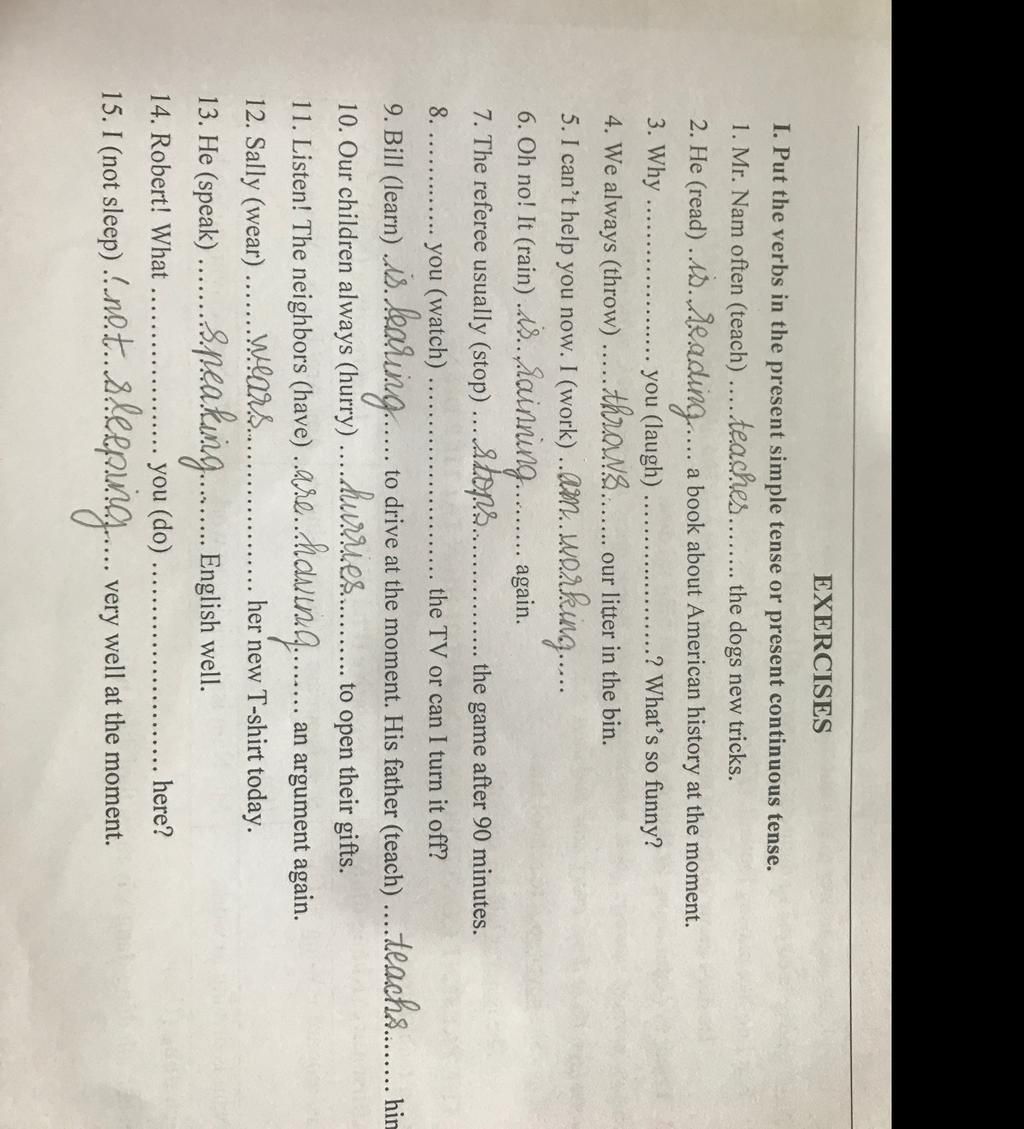 EXERCISES
I. Put the verbs in the present simple tense or present continuous tense.
1. Mr. Nam often (teach) ....teaches........ the dogs new tricks.
2. He (read) ..is.reading.... a book about American history at the moment.
3. Why ................... you (laugh) ...................? What's so funny?
4. We always (throw) .....throws....... our litter in the bin.
5. I can't help you now. I (work) ..am..working.....
6. Oh no! It (rain) ..is..rainning........ again.
7. The referee usually (stop) ....stops............... the game after 90 minutes.
8. ............ you (watch) ........................ the TV or can I turn it off?
9. Bill (learn) .is.learing..... to drive at the moment. His father (teach) ....teachs........ him
10. Our children always (hurry) .....hurries.......... to open their gifts.
11. Listen! The neighbors (have) ..are..having....... an argument again.
12. Sally (wear) .......wears................... her new T-shirt today.
13. He (speak) .......speaking........ English well.
14. Robert! What .................... you (do) ........................ here?
15. I (not sleep) .!not..sleeping..... very well at the moment.